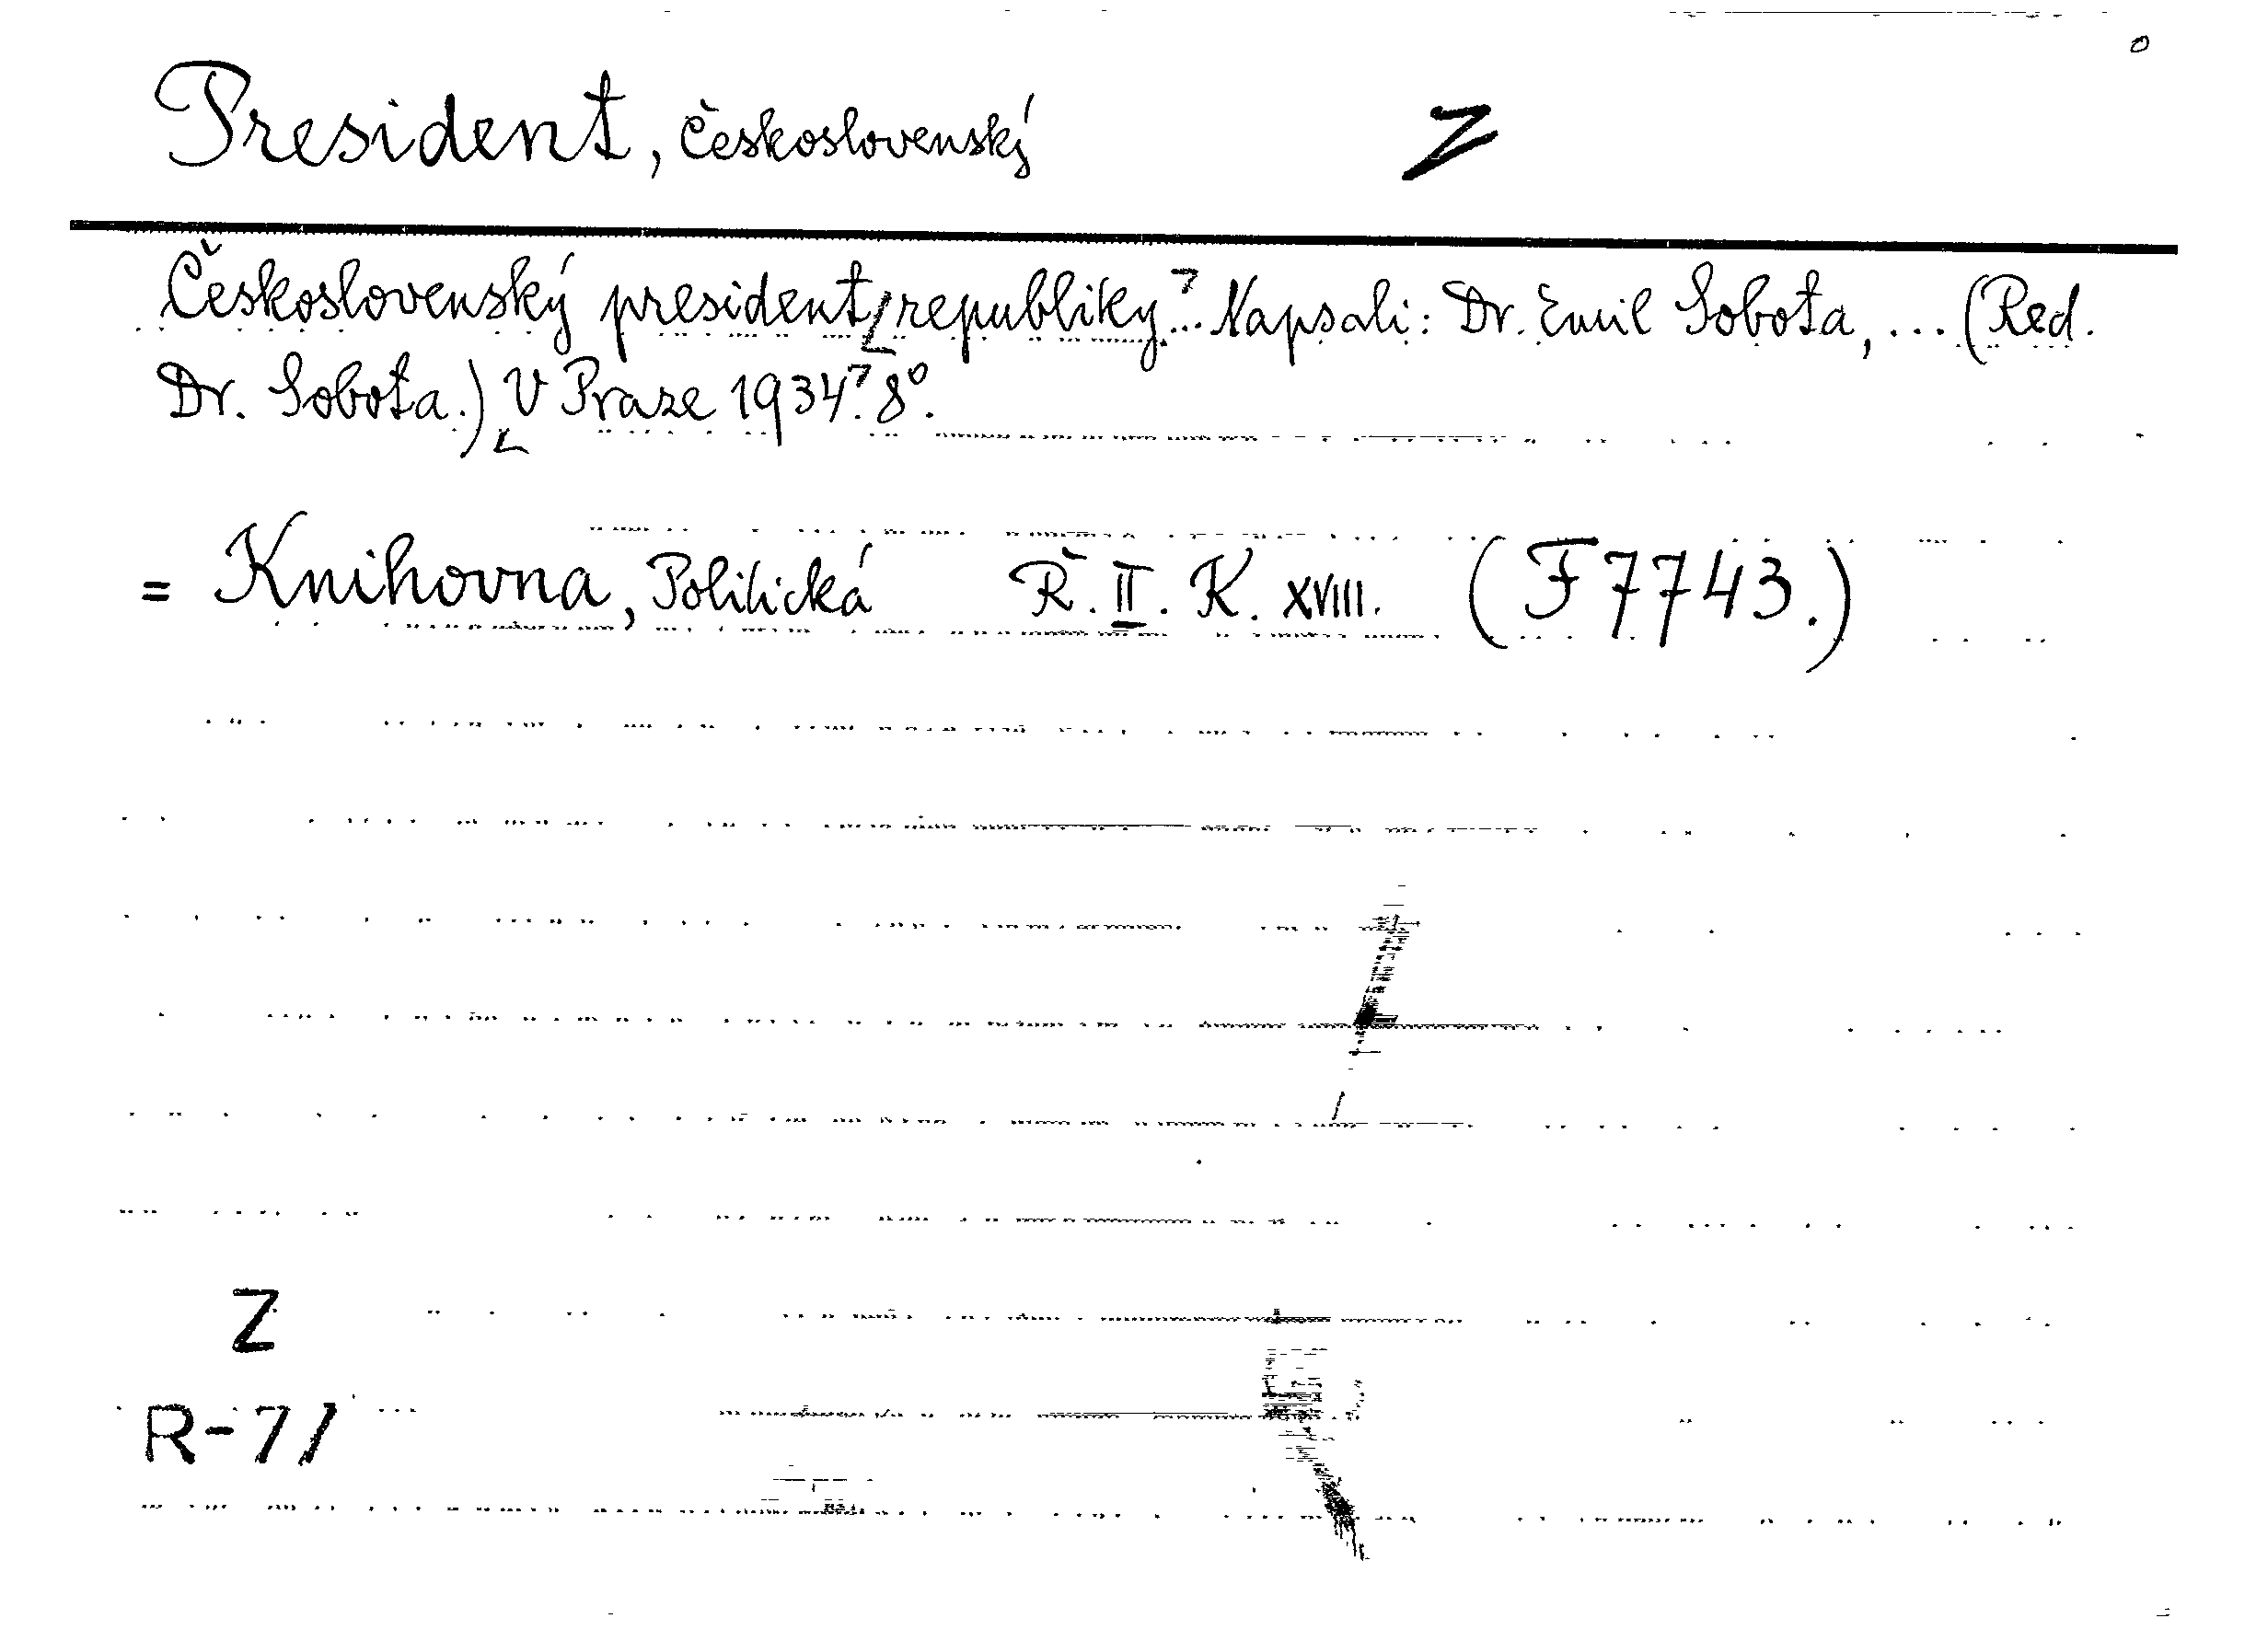 President, Československý Z
Československý president republiky... Napsali: Dr. Emil Sobota, ... (Red.
Dr. Sobota.) V Praze 1934. 8°.
= Knihovna, Politická Ř. II. K. XVIII. (F 7743.)
Z
R-71